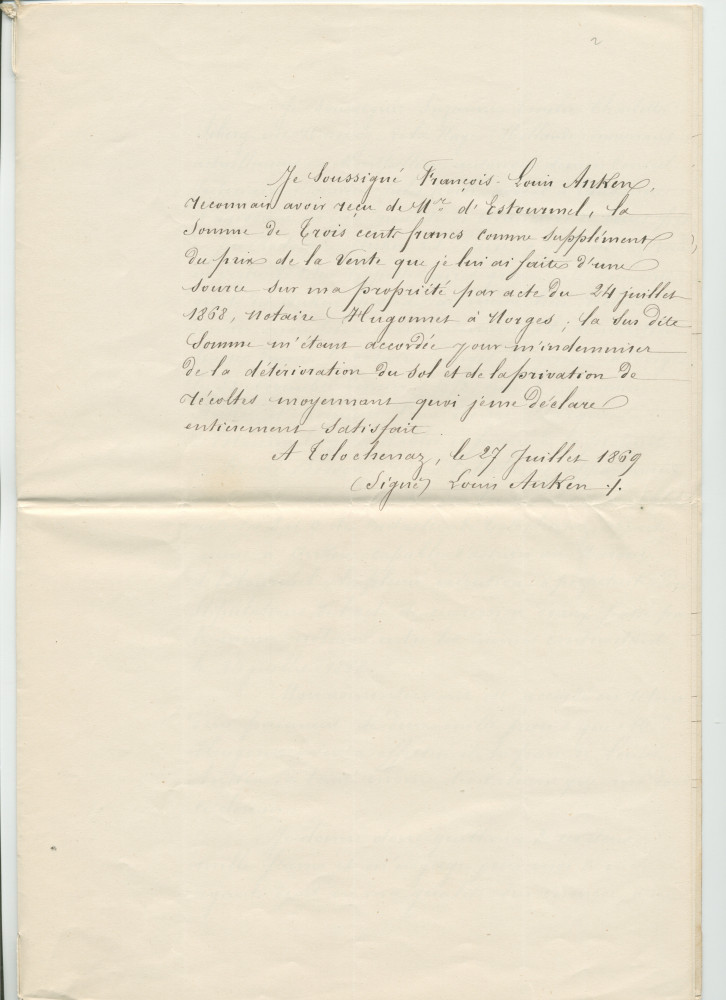 2
Je Soussigné François-Louis Anken,
reconnais avoir reçu de Mr. d'Estourmel, la
Somme de Trois cents francs comme supplément
du prix de la Vente que je lui ai faite d'une
source sur ma propriété par acte du 24 juillet
1868, notaire Hugonnet à Morges; la sus dite
Somme m'étant accordée pour m'indemniser
de la détérioration du sol et de la privation de
récoltes moyennant quoi je me déclare
entièrement satisfait.
A Tolochenaz, le 27 Juillet 1869
(Signé) Louis Anken ./.